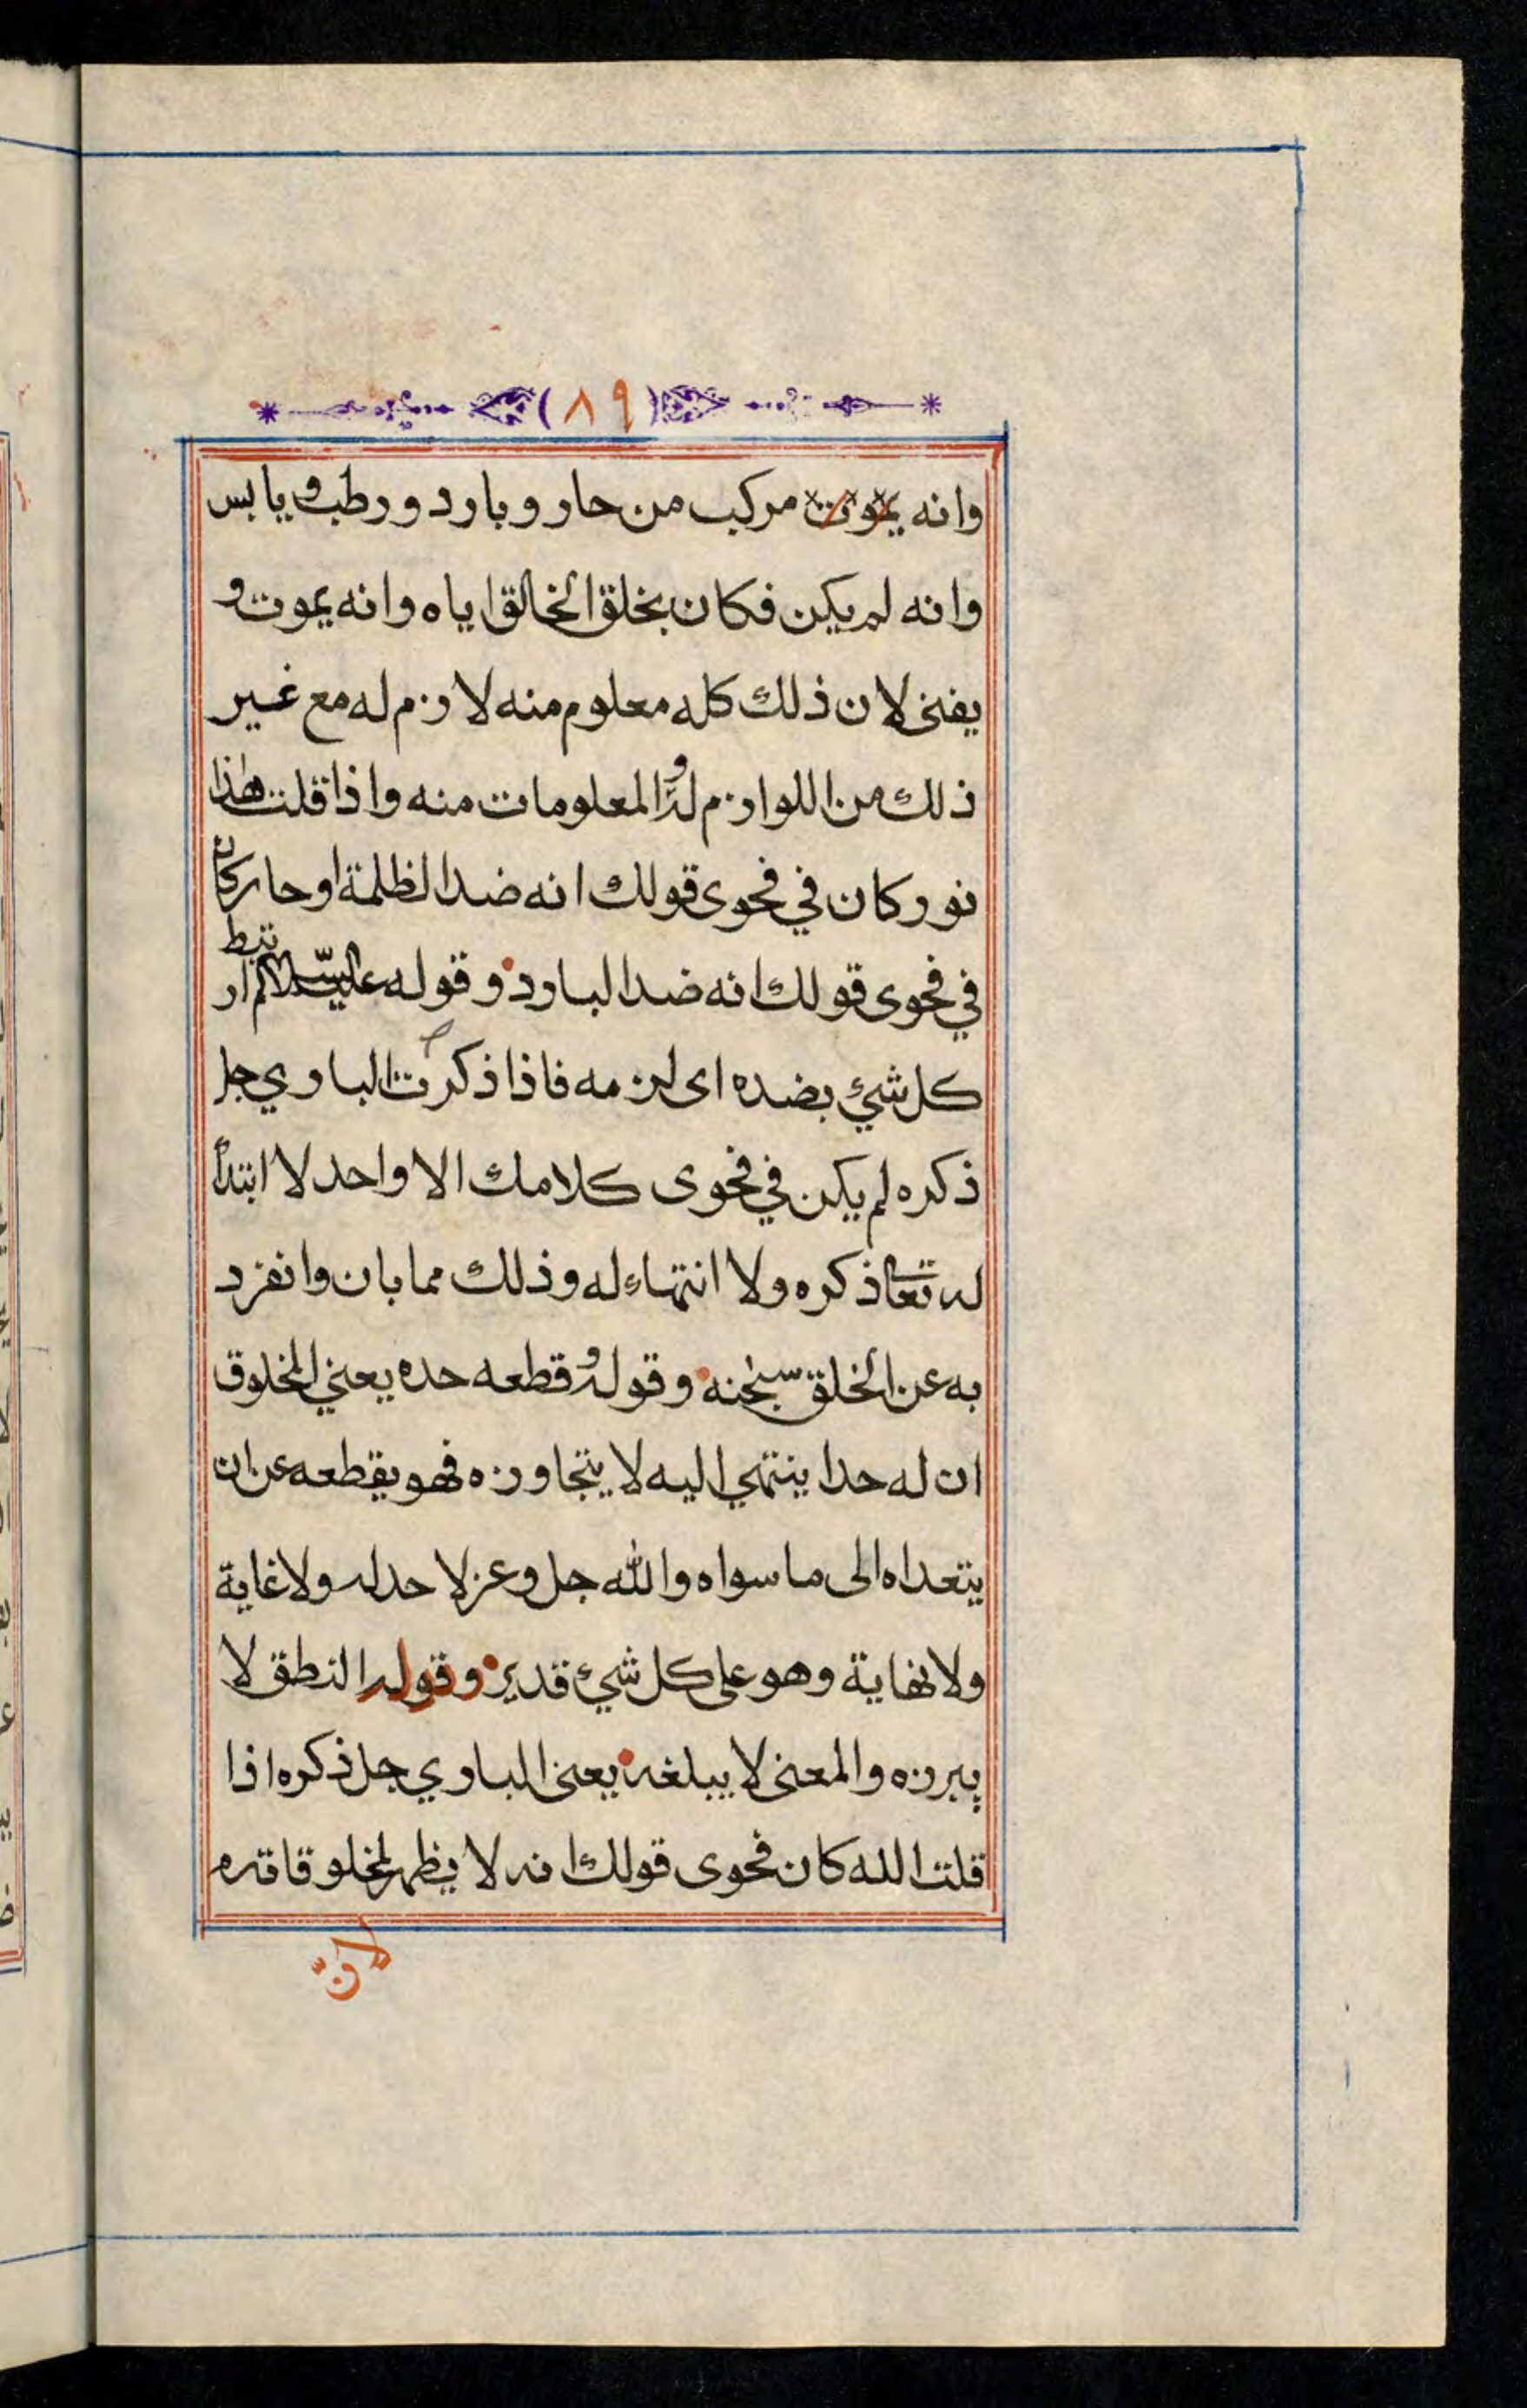 (٨٩)
وانه يموت مركب من حار وبارد ورطب ويابس
وانه لم يكن فكان بخلق الخالق اياه وانه يموت و
يفنى لان ذلك كله معلوم منه لازم له مع غير
ذلك من اللوازم له والمعلومات منه واذا قلت هذا
نور كان في فحوى قولك انه ضد الظلمة او حار كان
في فحوى قولك انه ضد البارد وقوله عليه السلام ارتبط
كل شيئ بضده اى لزمه فاذا ذكرت الباري جل
ذكره لم يكن في فحوى كلامك الا واحد لا ابتدأ
له تعا ذكره ولا انتهاء له وذلك مما بان وانفرد
به عن الخلق سبحنه وقوله وقطعه حده يعني المخلوق
ان له حدا ينتهي اليه لا يتجاوزه فهو يقطعه عن ان
يتعداه الى ما سواه والله جل وعز لا حد له ولا غاية
ولا نهاية وهو على كل شيئ قدير وقوله النطق لا
يبرزه والمعنى لا يبلغه يعنى الباري جل ذكره اذا
قلت الله كان فحوى قولك انه لا يظهر لمخلوقاته
لانّ